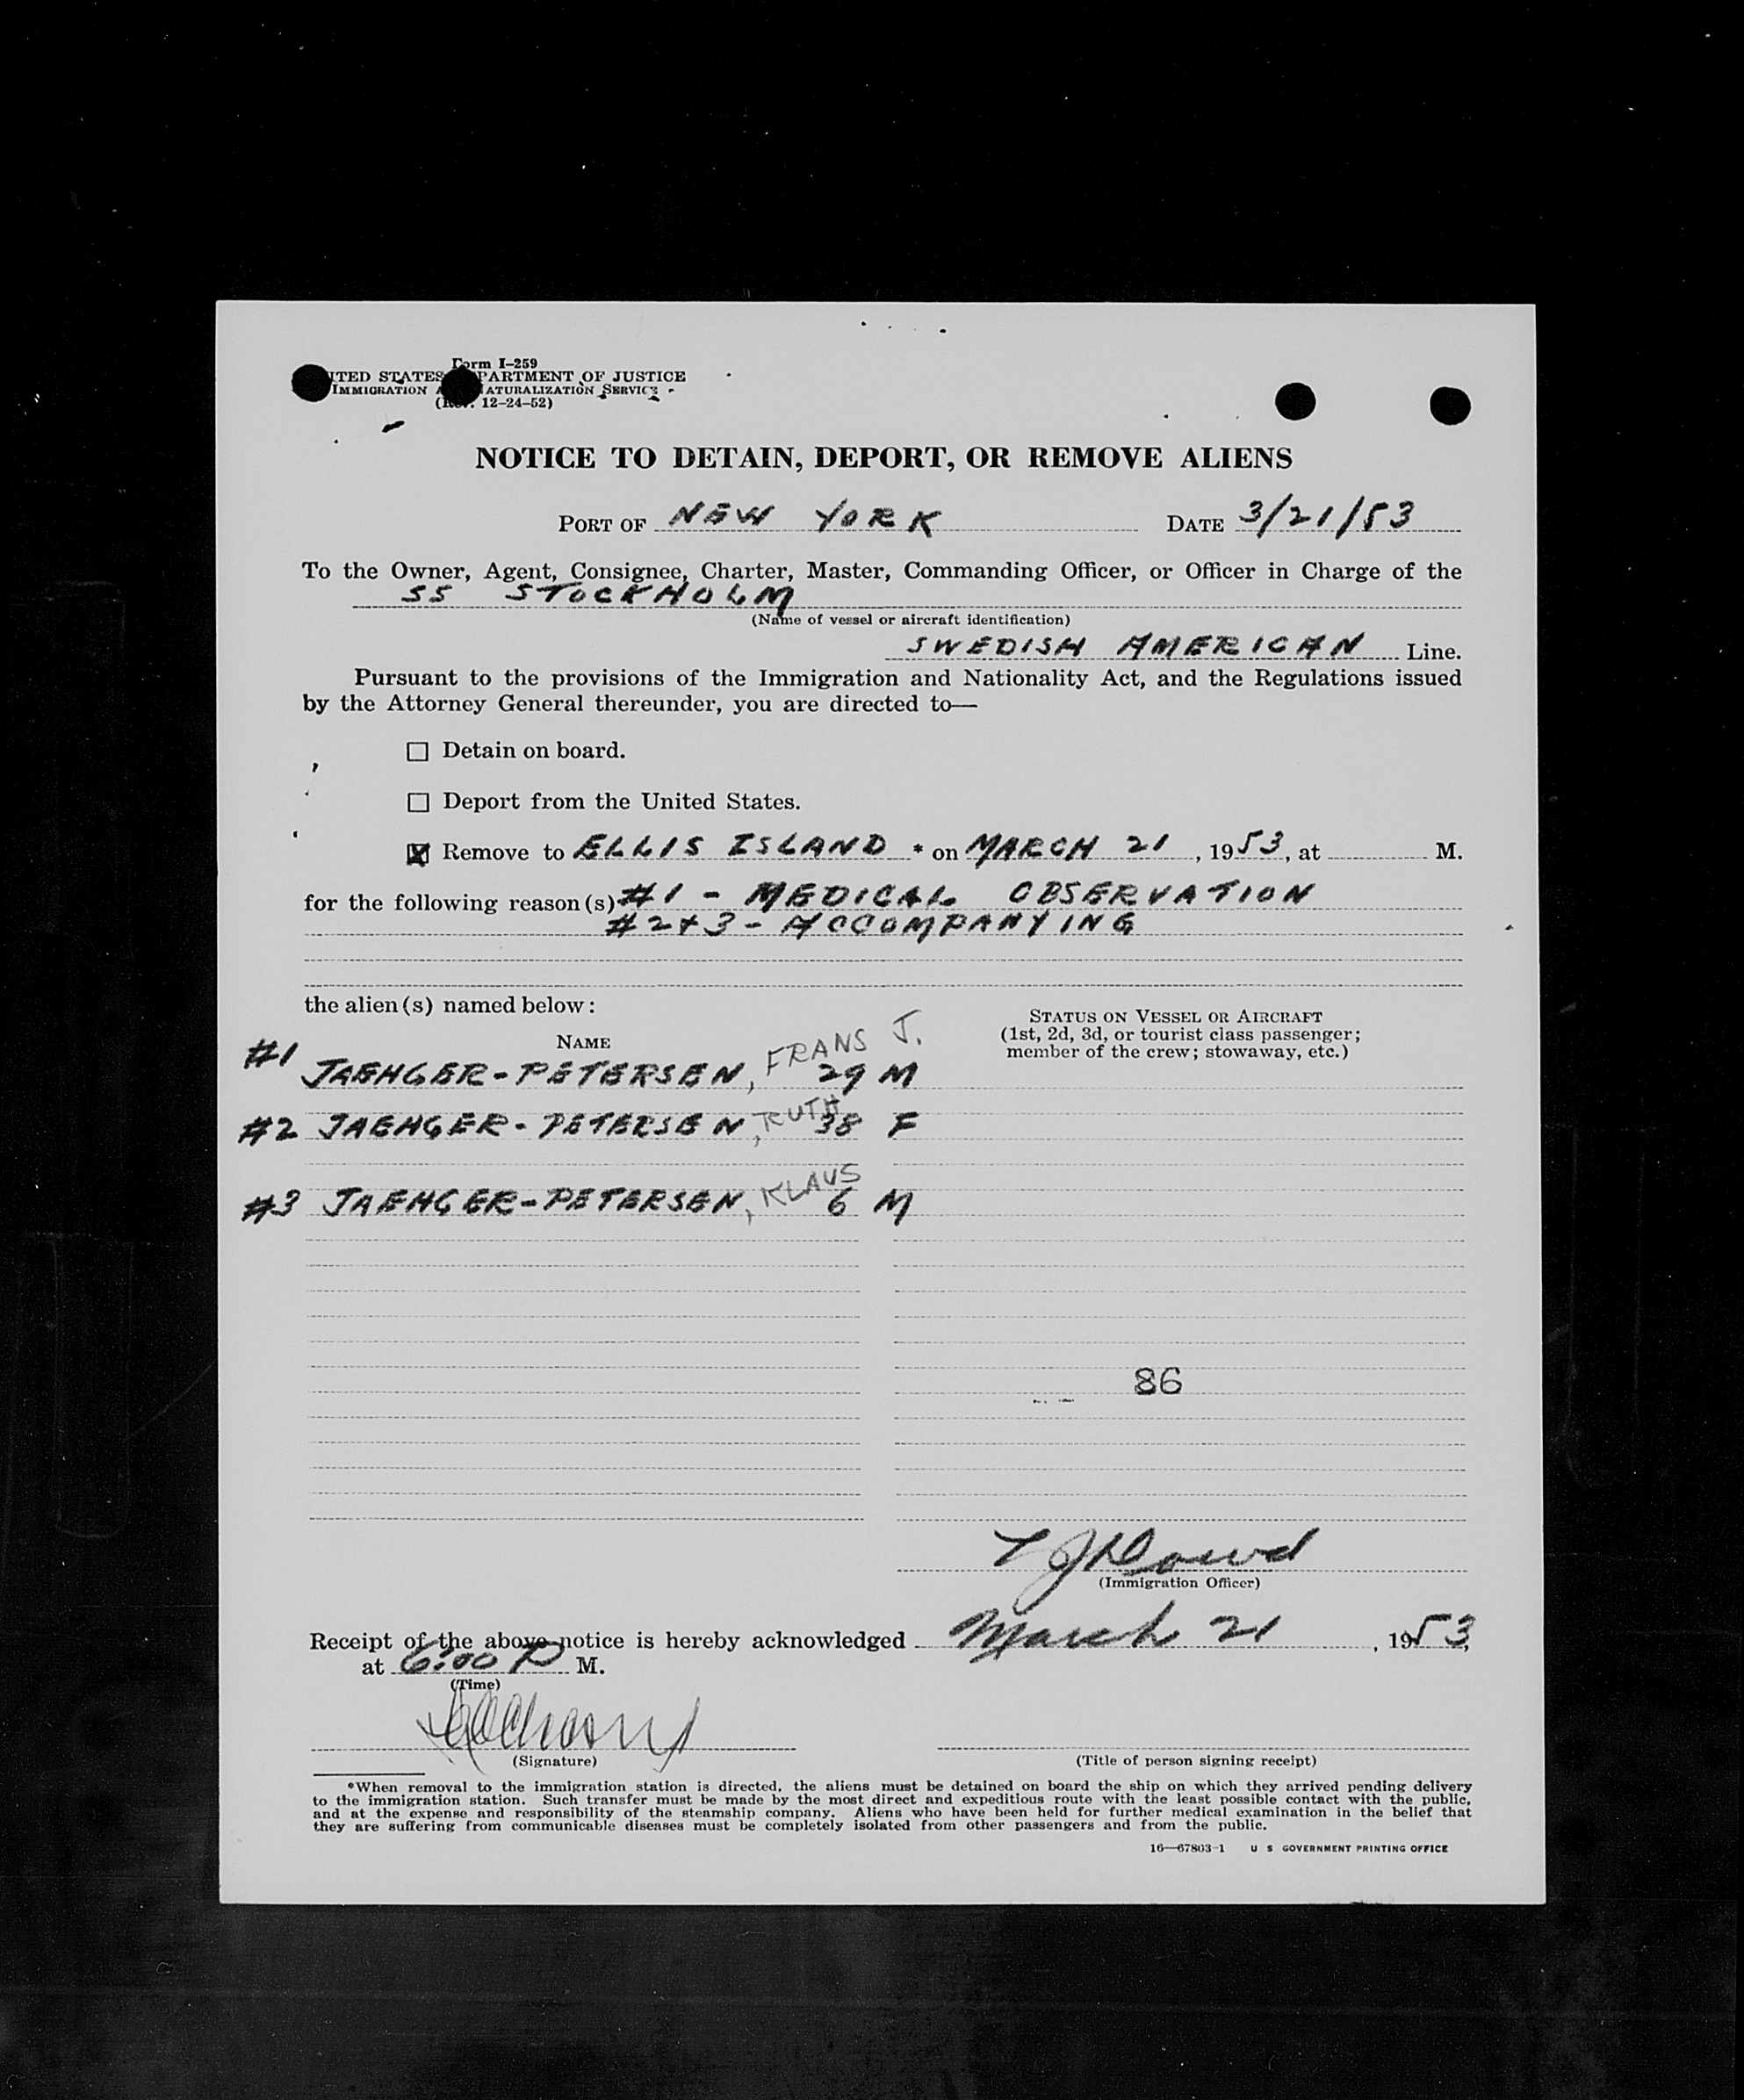 Form I-259
TED STATES PARTMENT OF JUSTICE
IMMIGRATION ATURALIZATION SERVICE
12-24-52)
NOTICE TO DETAIN, DEPORT, OR REMOVE ALIENS
PORT OF NEW YORK DATE 3/21/53
To the Owner, Agent, Consignee, Charter, Master, Commanding Officer, or Officer in Charge of the
SS STOCKHOLM
(Name of vessel or aircraft identification)
SWEDISH AMERICAN Line.
Pursuant to the provisions of the Immigration and Nationality Act, and the Regulations issued
by the Attorney General thereunder, you are directed to—
☐ Detain on board.
☐ Deport from the United States.
☒ Remove to ELLIS ISLAND * on MARCH 21, 1953, at M.
for the following reason(s) #1 - MEDICAL OBSERVATION
#2+3 - ACCOMPANYING
the alien(s) named below:
NAME
STATUS ON VESSEL OR AIRCRAFT
(1st, 2d, 3d, or tourist class passenger;
member of the crew; stowaway, etc.)
#1 JAEHGER-PETERSEN, FRANS J. 29 M
#2 JAEHGER-PETERSEN, RUTH 38 F
#3 JAEHGER-PETERSEN, KLAUS 6 M
86
Dowd
(Immigration Officer)
Receipt of the above notice is hereby acknowledged March 21, 1953,
at 6:00 P M.
(Time)
(Signature)
(Title of person signing receipt)
*When removal to the immigration station is directed, the aliens must be detained on board the ship on which they arrived pending delivery
to the immigration station. Such transfer must be made by the most direct and expeditious route with the least possible contact with the public,
and at the expense and responsibility of the steamship company. Aliens who have been held for further medical examination in the belief that
they are suffering from communicable diseases must be completely isolated from other passengers and from the public.
16—67803-1 U S GOVERNMENT PRINTING OFFICE